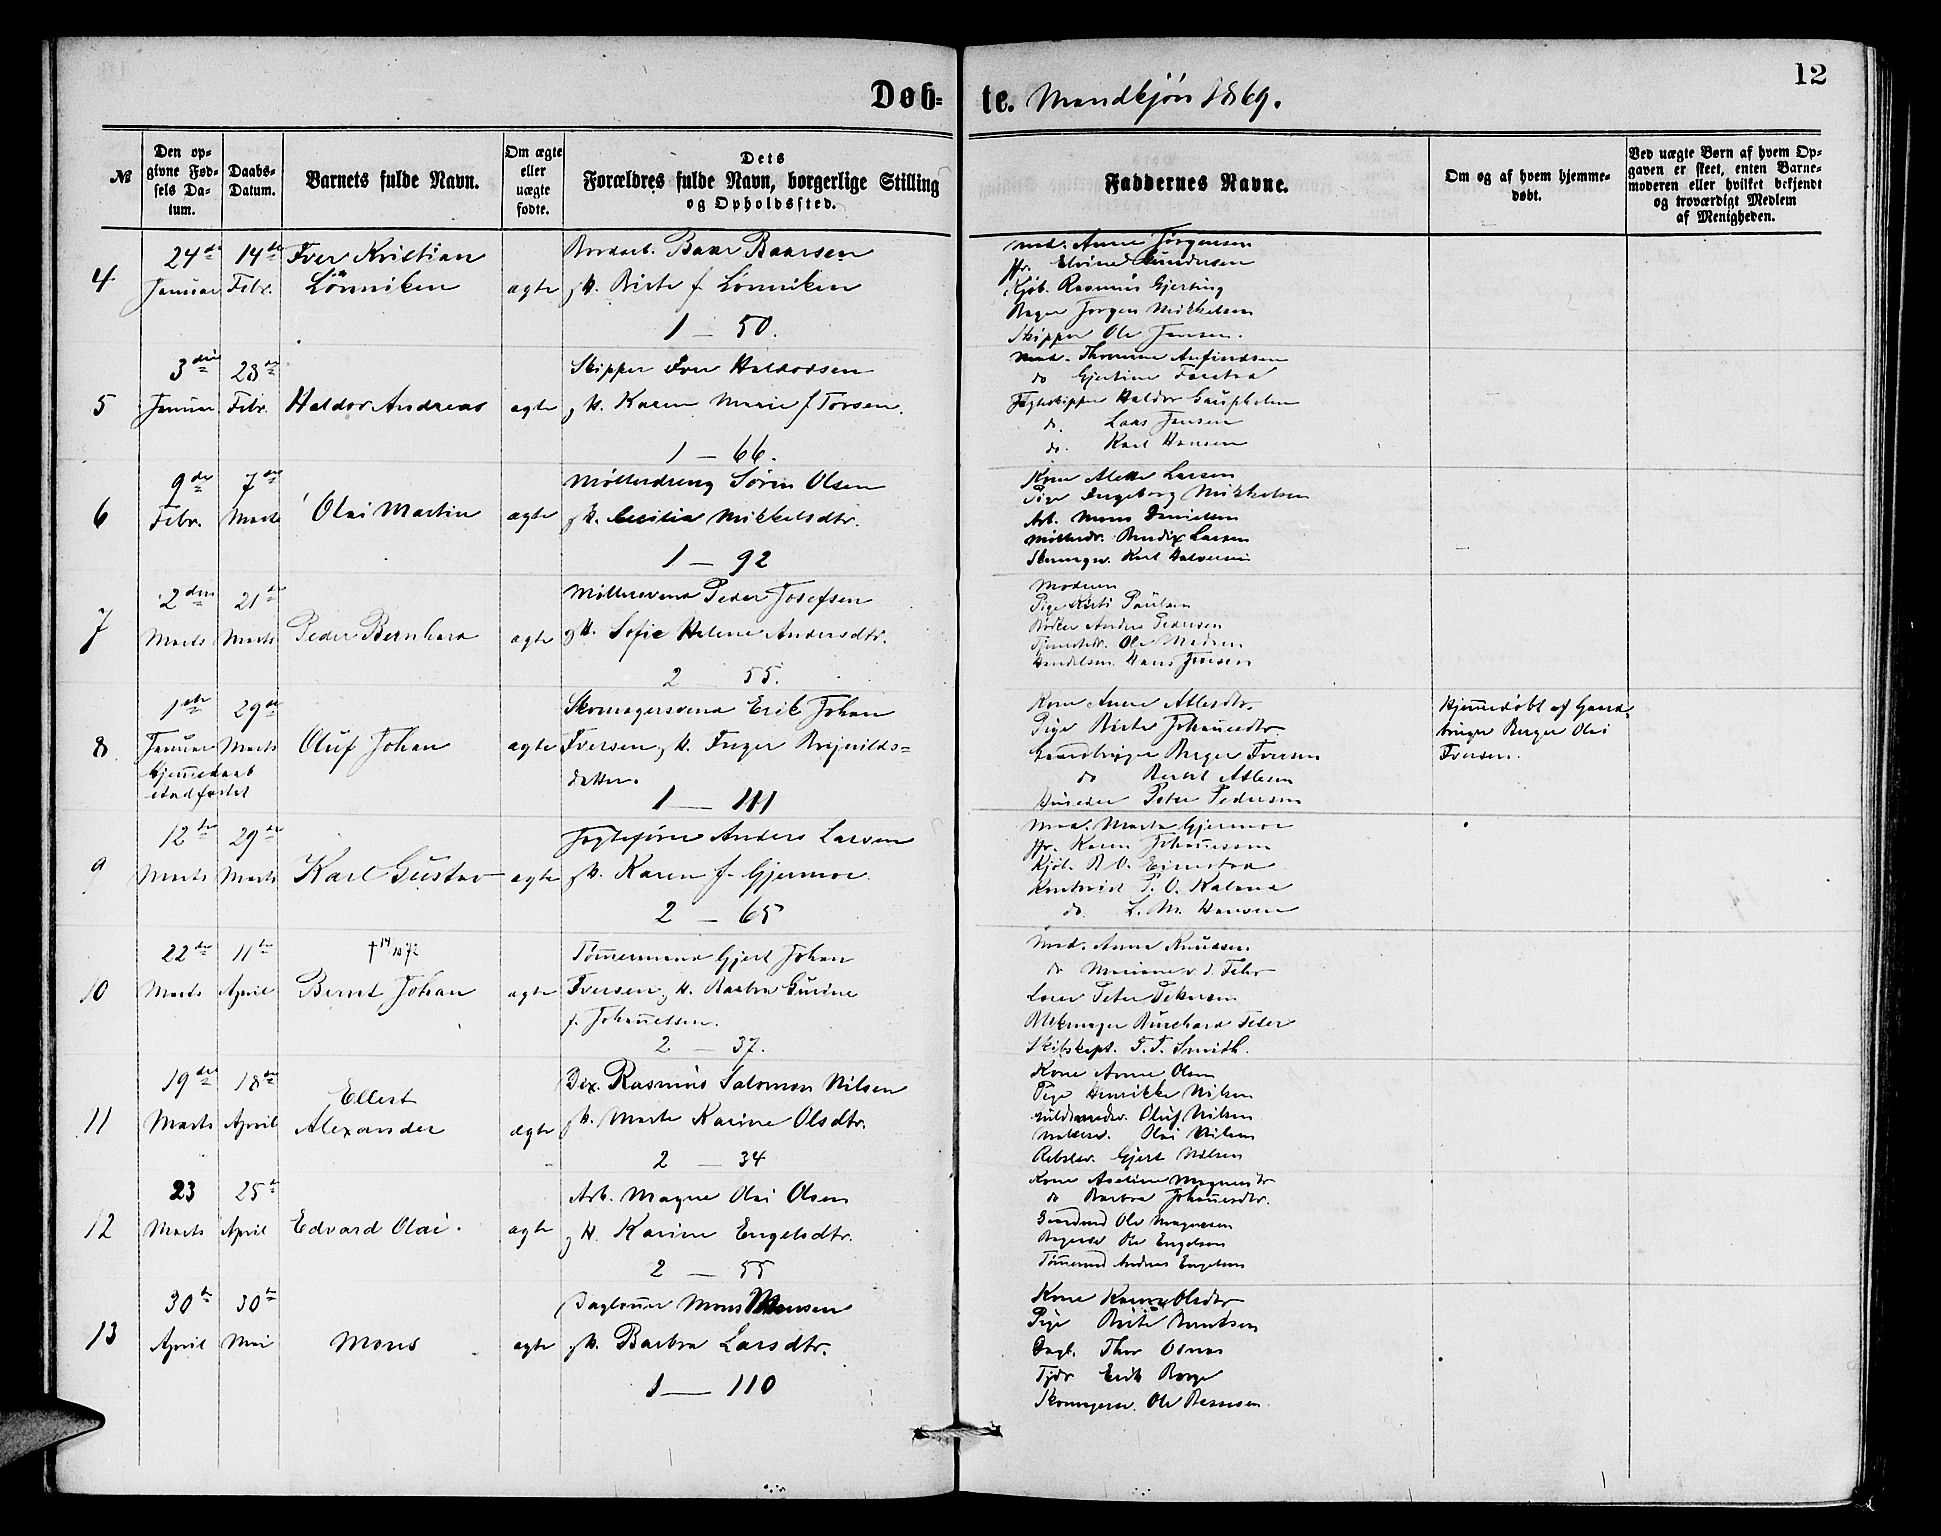 12
Døb-
te. Mandkjøn 1869.
№
Den op-
givne Fød-
sels Da-
tum.
Daabs-
Datum.
Barnets fulde Navn.
Om ægte
eller
uægte
fødte.
Dets
Forældres fulde Navn, borgerlige Stilling
og Opholdssted.
Faddernes Navne.
Om og af hvem hjemme-
døbt.
Ved uægte Børn af hvem Op-
gaven er skeet, enten Barne-
moderen eller hvilket bekjendt
og troværdigt Medlem
af Menigheden.
4
24de
Januar
14de
Febr.
Iver Kristian
Lönniken
ægte
Baar Baarsen
H. Birte f. Lonniken
1 — 50.
Mad. Anne Jörgensen
Jfr. Elvine Gundersen
Kjöb. Rasmus Gjerting
Bager Jorgen Mikkelsen
Skipper Ole Jensen.
5
3die
Januar
28de
Febr.
Haldor Andreas
ægte
Skipper Iver Haldorsen
g H. Karen Marie f Torsen.
1 — 66.
Mad. Anfindsen
do Gjertine
Jagteskipper Haldor
do. Lars Jansen
do. Karl Hansen
6
9de
Febr.
7de
Marts
Olai Martin
ægte
Møllerdreng Sören Olsen
g H. Cecilia Mikkelsdtr.
1 — 92
Kone Alette Larsen
Pige Ingeborg Mikkelsen
Arb. Mons Danielsen
Møllerdr. Bendix Larsen
Skomagersv. Karl Halvorsen
7
2den
Marts
21de
Marts
Peder Bernhard
ægte
Møllersvend Peder Josefsen
g H. Sofie Helene Andersdtr.
2 55.
Moderen
Pige Kirsti Paulsen
Bødker Anders Pedersen
Tjenestedr. Ole Madsen
Handelsm. Hans Iversen
8
1ste
Januar
29de
Marts
Hjemmedaab
stadfæstet
Oluf Johan
ægte
Skomagersvend Erik Johan
Iversen g H. Inger Brynilds-
datter.
1 — 111
Kone Anne Atlesdtr.
Pige Birte Johannesdtr.
Gaardbruger Berger Iversen
do Bernt Atlesen
Peter Pedersen
Hjemmedöbt af Gaard-
bruger Berger Olai
Iversen.
9
12te
Marts
29de
Marts
Karl Gustav
ægte
Jagtefører Anders Larsen
g H. Karen f. Gjermoe.
2 — 65
Mad. Marta Gjermoe
Jfr. Karen Johannessen
Kjöb. R. O. Eimstad
P. O. Kaland
do. L. M. Hansen
10
22de
Marts
11te
April
† 14/10 72
Bernt Johan
ægte
Tömmermand Gjert Johan
Iversen g H. Barbra Gurine
f. Johannessen.
2 — 37.
Mad. Anna Knudsen.
do Mariane v. d. Fehr
Peter Petersen
Blokmager Burchard Feser
Skibskapt. T. T. Smith.
11
19de
Marts
18de
April
Ellert
Alexander
ægte
Rasmus Salomon Nilsen
g H. Marte Karine Olsdtr.
2 — 34
Kone Anne Olsen
Pige Henrikke Nilsen
Guldsmedsv. Oluf Nilsen
Olai Nilsen
Rebslsv. Gjert Nilsen
12
23
Marts
25de
April
Edvard Olai.
ægte
Arb. Magne Olai Olsen
g H. Karine Engelsdtr.
2 — 55
Kone Axeline Magnesdtr
do Barbra Johannesdtr.
Gaardmd Ole Magnesen
Bagersv. Ole Engelsen
Tömmermd Andreas Engelsen
13
30te
April
30te
Mai
Mons
ægte
Daglönner Mons Monsen
g H. Barbra Larsdtr.
1 — 110
Kone Karen Olsdtr
Pige Birte Berntsen
Dagl. Thor Osnes
Tjdr Erik Borge
Skomagersv. Ole Bessesen